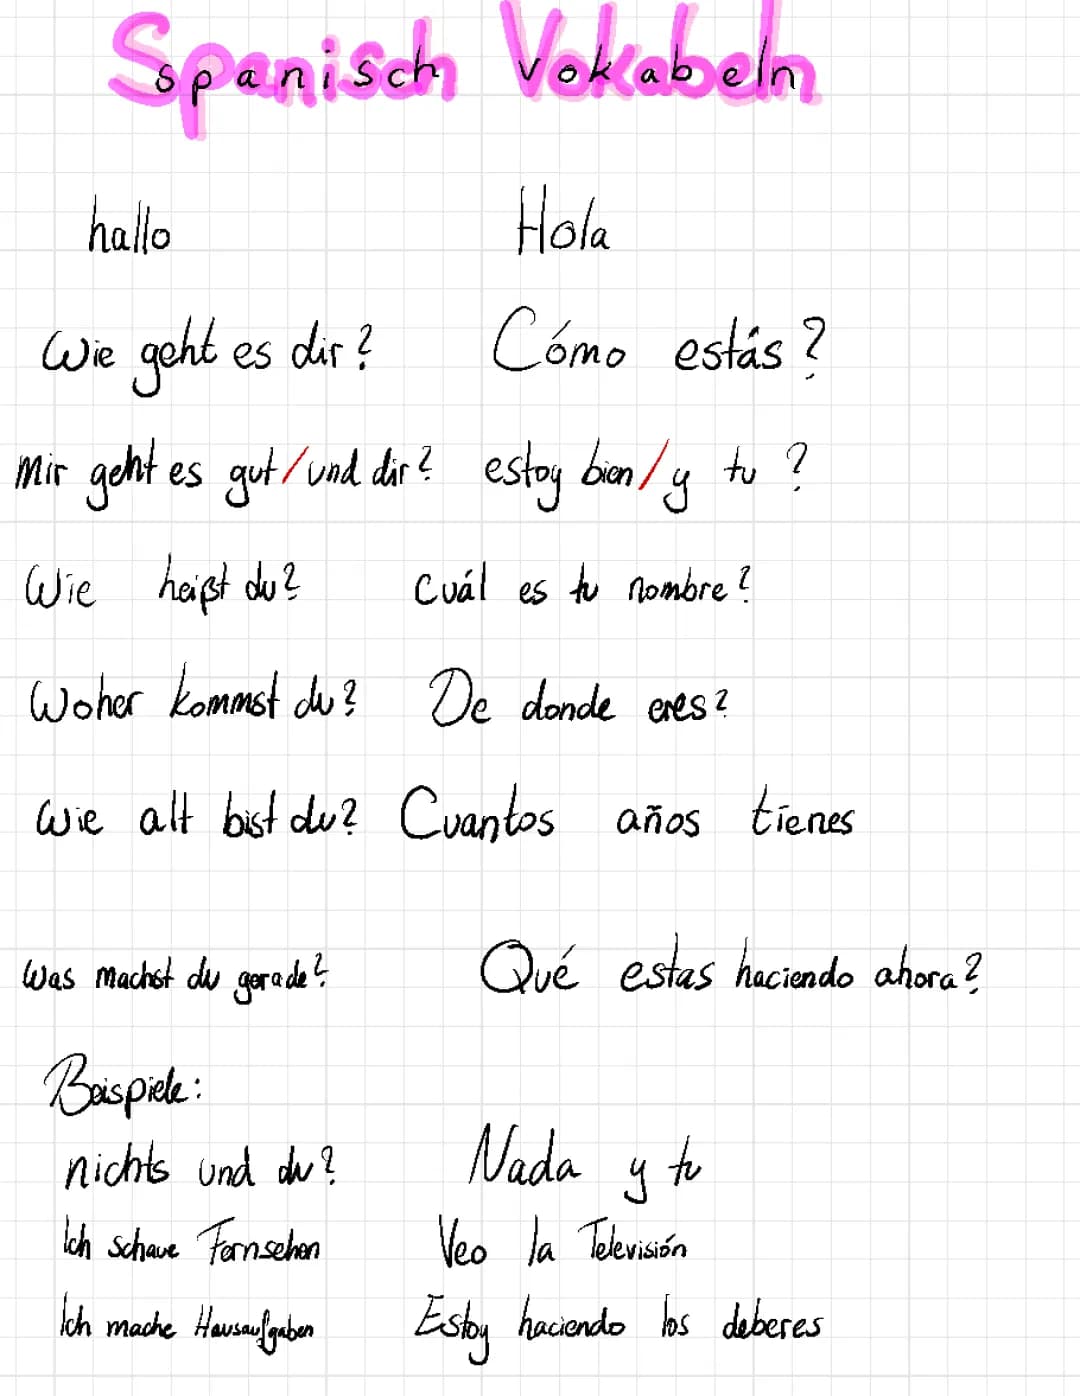 Spanisch Vokabeln
hallo Hola
Wie geht es dir? Cómo estás?
Mir geht es gut/und dir? estoy bien/y tu?
Wie heißt du? Cuál es tu nombre?
Woher kommst du? De donde eres?
Wie alt bist du? Cuantos años tienes
Was machst du gerade? Qué estas haciendo ahora?
Beispiele:
nichts und du? Nada y tu
Ich schaue Fernsehen Veo la Televisión
Ich mache Hausaufgaben Estoy haciendo los deberes